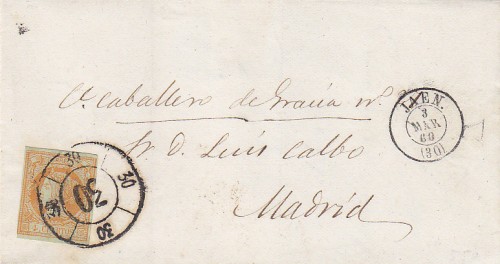 Cᵉ Caballero de Gracia nº
Sr. D. Luis Calbo
Madrid
JAEN.
3
MAR
60
(30)
30
30
30
30